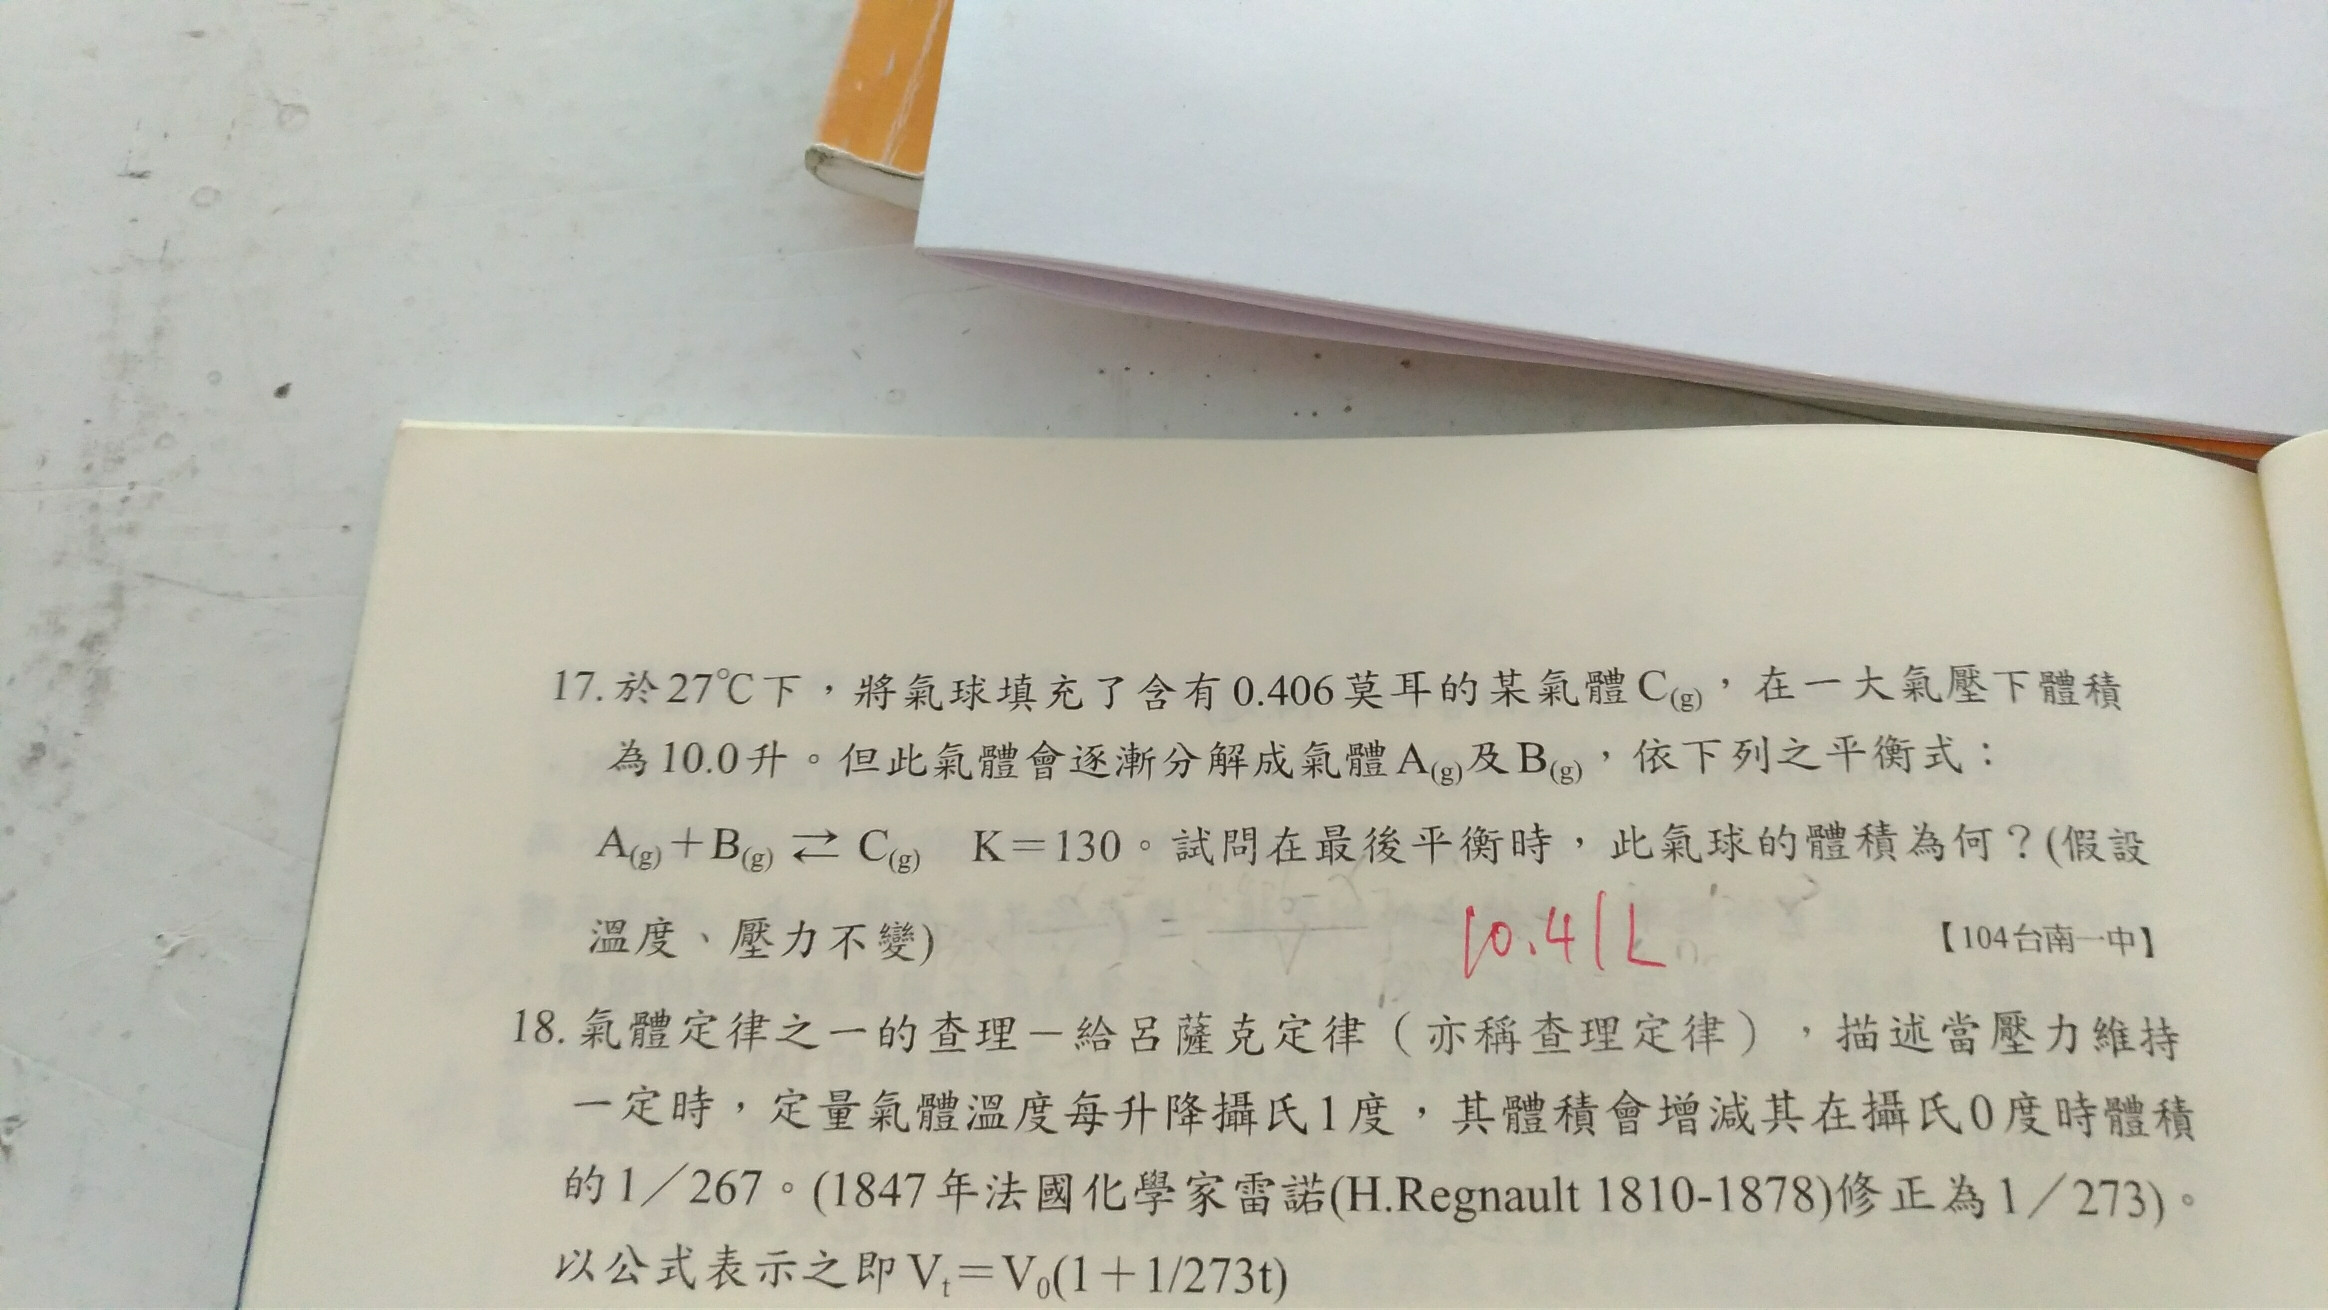 17. 於27℃下，將氣球填充了含有0.406莫耳的某氣體C(g)，在一大氣壓下體積
為10.0升。但此氣體會逐漸分解成氣體A(g)及B(g)，依下列之平衡式：
A(g)＋B(g) ⇄ C(g)　K＝130。試問在最後平衡時，此氣球的體積為何？(假設
溫度、壓力不變) 10.41L 【104台南一中】
18. 氣體定律之一的查理－給呂薩克定律（亦稱查理定律），描述當壓力維持
一定時，定量氣體溫度每升降攝氏1度，其體積會增減其在攝氏0度時體積
的1／267。(1847年法國化學家雷諾(H.Regnault 1810-1878)修正為1／273)。
以公式表示之即Vt＝V0(1＋1/273t)